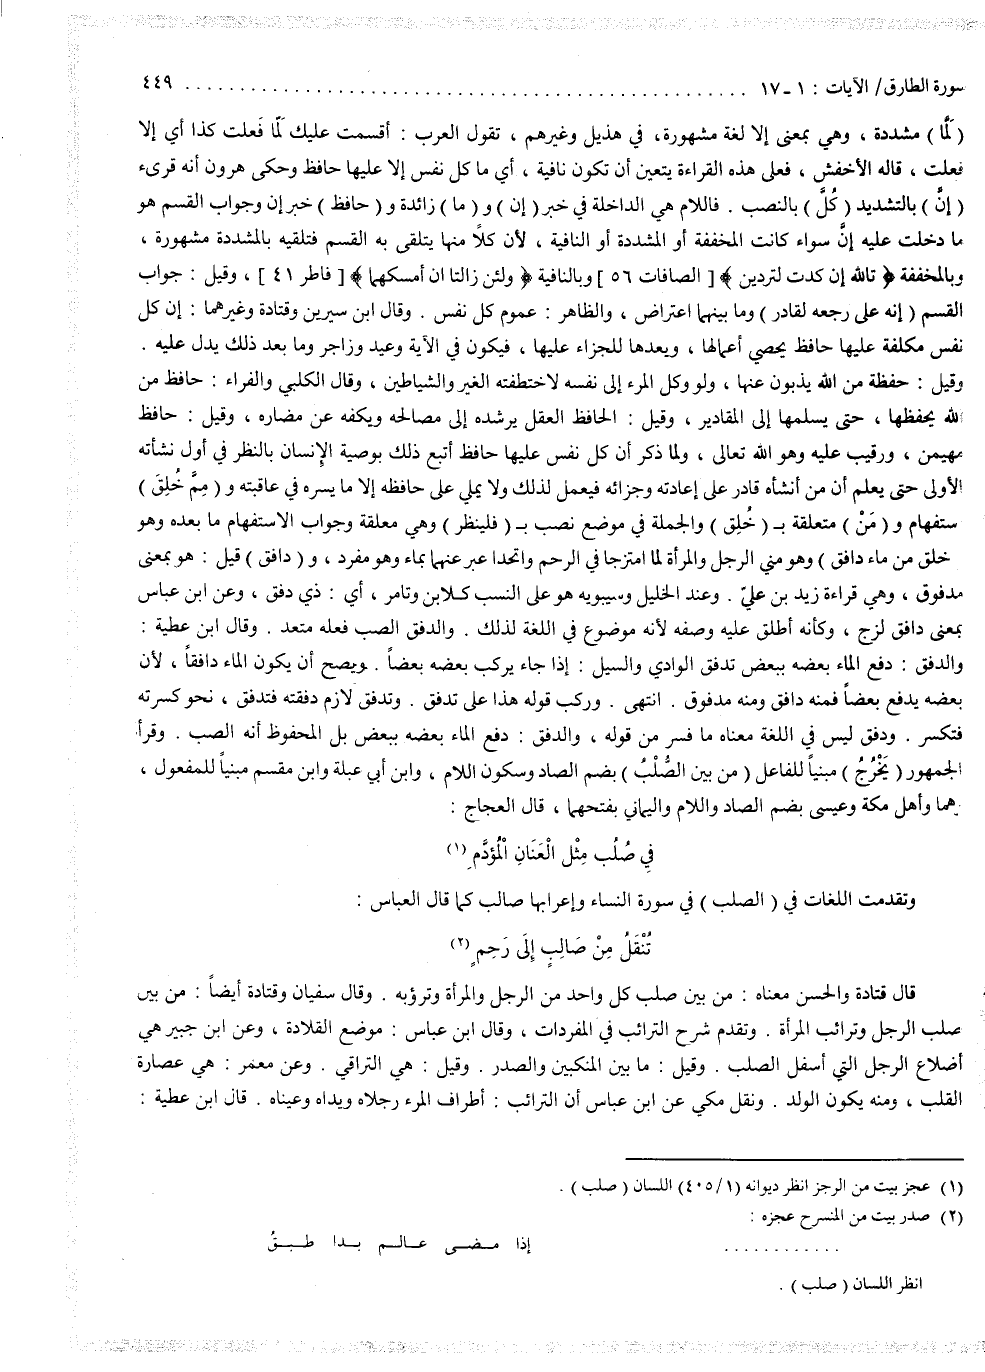 سورة الطارق/ الآيات : ١ ـ ١٧ ................................................ ٤٤٩
( لَمَّا ) مشددة ، وهي بمعنى إلا لغة مشهورة، في هذيل وغيرهم ، تقول العرب : أقسمت عليك لَمَّا فَعلت كذا أي إلا
فعلت ، قاله الأخفش ، فعلى هذه القراءة يتعين أن تكون نافية ، أي ما كل نفس إلا عليها حافظ وحكى هرون أنه قرىء
( إنَّ ) بالتشديد ( كُلَّ ) بالنصب . فاللام هي الداخلة في خبر ( إن ) و ( ما ) زائدة و ( حافظ ) خبر إن وجواب القسم هو
ما دخلت عليه إنَّ سواء كانت المخففة أو المشددة أو النافية ، لأن كلاً منها يتلقى به القسم فتلقيه بالمشددة مشهورة ،
وبالمخففة ﴿ تالله إن كدت لتردين ﴾ [ الصافات ٥٦ ] وبالنافية ﴿ ولئن زالتا ان أمسكهما ﴾ [ فاطر ٤١ ] ، وقيل : جواب
القسم ( إنه على رجعه لقادر ) وما بينهما اعتراض ، والظاهر : عموم كل نفس . وقال ابن سيرين وقتادة وغيرهما : إن كل
نفس مكلفة عليها حافظ يحصي أعمالها ، ويعدها للجزاء عليها ، فيكون في الآية وعيد وزاجر وما بعد ذلك يدل عليه .
وقيل : حفظة من الله يذبون عنها ، ولو وكل المرء إلى نفسه لاختطفته الغير والشياطين ، وقال الكلبي والفراء : حافظ من
الله يحفظها ، حتى يسلمها إلى المقادير ، وقيل : الحافظ العقل يرشده إلى مصالحه ويكفه عن مضاره ، وقيل : حافظ
مهيمن ، ورقيب عليه وهو الله تعالى ، ولما ذكر أن كل نفس عليها حافظ أتبع ذلك بوصية الإنسان بالنظر في أول نشأته
الأولى حتى يعلم أن من أنشأه قادر على إعادته وجزائه فيعمل لذلك ولا يملي على حافظه إلا ما يسره في عاقبته و ( مِمَّ خُلِقَ )
ستفهام و ( مَنْ ) متعلقة بـ ( خُلِق ) والجملة في موضع نصب بـ ( فلينظر ) وهي معلقة وجواب الاستفهام ما بعده وهو
خلق من ماء دافق ) وهو مني الرجل والمرأة لما امتزجا في الرحم واتحدا عبر عنهما بماء وهو مفرد ، و ( دافق ) قيل : هو بمعنى
مدفوق ، وهي قراءة زيد بن عليّ . وعند الخليل وسيبويه هو على النسب كـلابن وتامر ، أي : ذي دفق ، وعن ابن عباس
بمعنى دافق لزج ، وكأنه أطلق عليه وصفه لأنه موضوع في اللغة لذلك . والدفق الصب فعله متعد . وقال ابن عطية :
والدفق : دفع الماء بعضه ببعض تدفق الوادي والسيل : إذا جاء يركب بعضه بعضاً . ويصح أن يكون الماء دافقاً ، لأن
بعضه يدفع بعضاً فمنه دافق ومنه مدفوق . انتهى . وركب قوله هذا على تدفق . وتدفق لازم دفقته فتدفق ، نحو كسرته
فتكسر . ودفق ليس في اللغة معناه ما فسر من قوله ، والدفق : دفع الماء بعضه ببعض بل المحفوظ أنه الصب . وقرأ
الجمهور ( يَخْرُجُ ) مبنياً للفاعل ( من بين الصُّلْبُ ) بضم الصاد وسكون اللام ، وابن أبي عبلة وابن مقسم مبنياً للمفعول ،
وهما وأهل مكة وعيسى بضم الصاد واللام واليماني بفتحهما ، قال العجاج :
فِي صُلُبِ مِثْلِ الْعَنَانِ الْمُؤدَّمِ (١)
وتقدمت اللغات في ( الصلب ) في سورة النساء وإعرابها صالب كما قال العباس :
تُنْقَلُ مِنْ صَالِبٍ إِلَى رَحِمٍ (٢)
قال قتادة والحسن معناه : من بين صلب كل واحد من الرجل والمرأة وترؤبه . وقال سفيان وقتادة أيضاً : من بين
صلب الرجل وترائب المرأة . وتقدم شرح الترائب في المفردات ، وقال ابن عباس : موضع القلادة ، وعن ابن جبير هي
أضلاع الرجل التي أسفل الصلب . وقيل : ما بين المنكبين والصدر . وقيل : هي التراقي . وعن معمر : هي عصارة
القلب ، ومنه يكون الولد . ونقل مكي عن ابن عباس أن الترائب : أطراف المرء رجلاه ويداه وعيناه . قال ابن عطية :
(١) عجز بيت من الرجز انظر ديوانه (٤٠٥/١) اللسان ( صلب ) .
(٢) صدر بيت من المنسرح عجزه :
............ إذا مـضـى عـالـم بـدا طـبـقُ
انظر اللسان ( صلب ) .